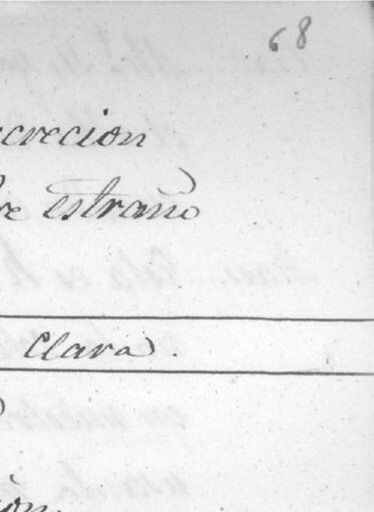 68
crecion
re estraño
Clara.
ion.